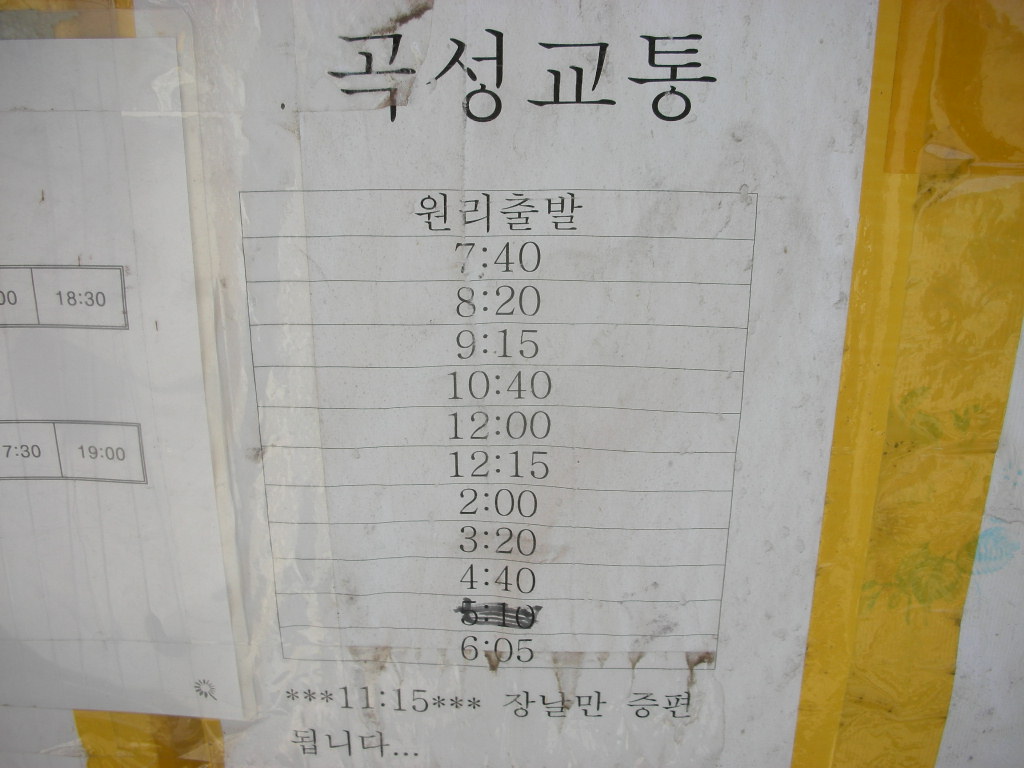 곡성교통
원리출발
7:40
8:20
9:15
10:40
12:00
12:15
2:00
3:20
4:40
5:10
6:05
***11:15*** 장날만 증편
됩니다...
00 18:30
7:30 19:00